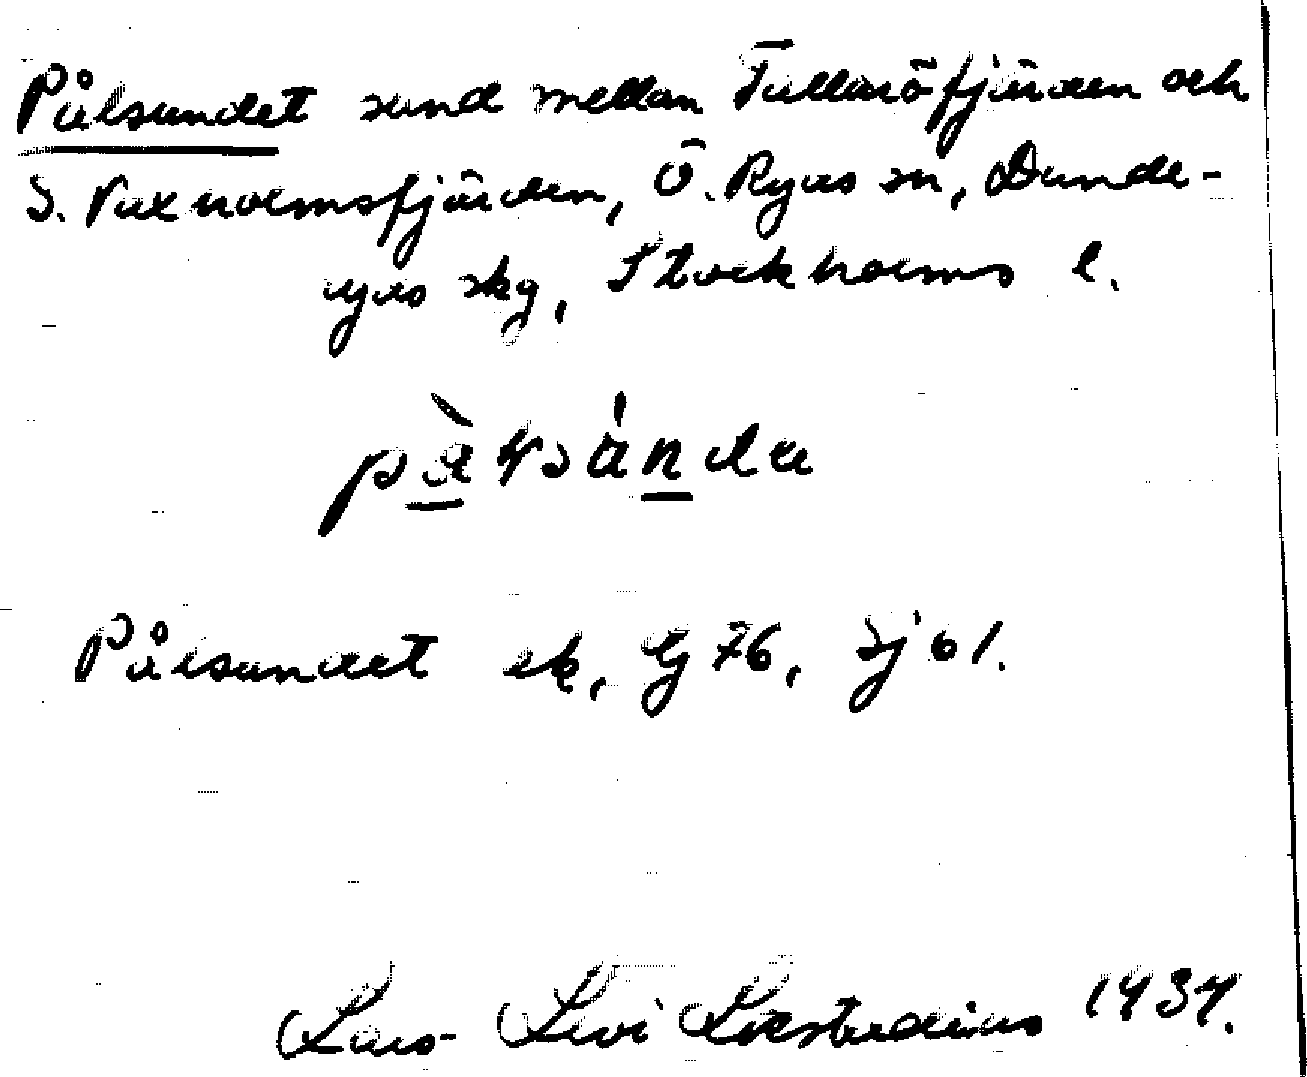 Pålsundet sund mellan Tallaröfjärden och
S. Vaxholmsfjärden, Ö. Ryds sn, Dande-
ryds skg, Stockholms l.
Pålsundet ek, Gj 76, Sj 61.
Lars-Levi Læstadius 1934.